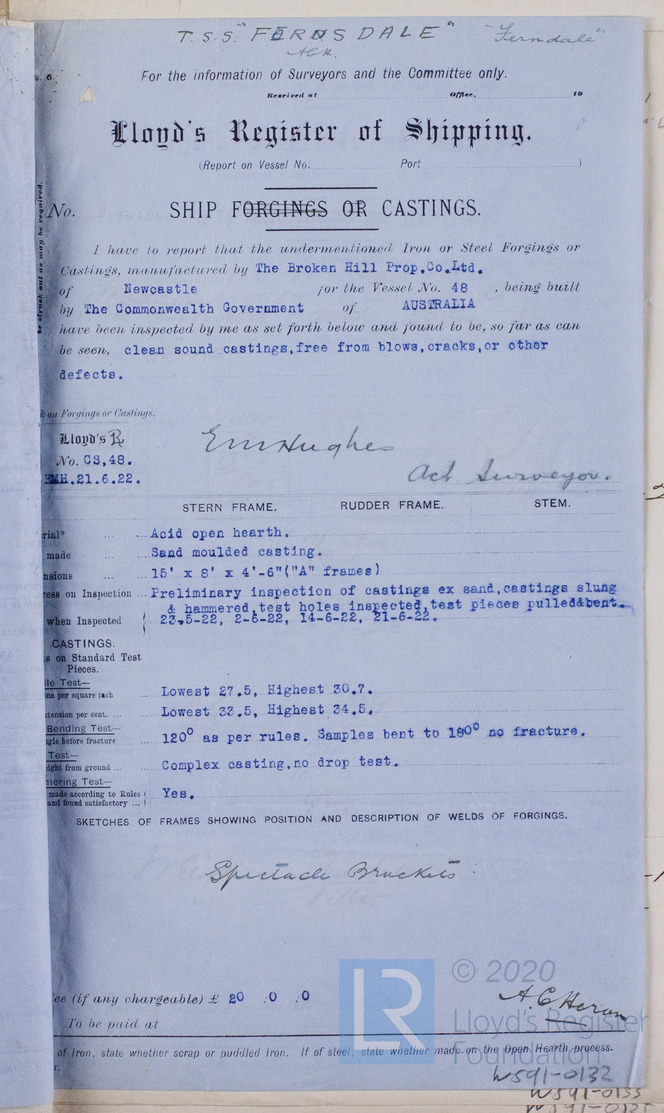 T.S.S. "FERNSDALE" "Ferndale"
A.C.H.
o. 6.
For the information of Surveyors and the Committee only.
Received at Office, 19
Lloyd's Register of Shipping.
(Report on Vessel No. Port )
No. SHIP FORGINGS OR CASTINGS.
be struck out as may be required.
I have to report that the undermentioned Iron or Steel Forgings or
Castings, manufactured by The Broken Hill Prop.Co.Ltd.
of Newcastle for the Vessel No. 48 , being built
by The Commonwealth Government of AUSTRALIA
have been inspected by me as set forth below and found to be, so far as can
be seen, clean sound castings,free from blows,cracks,or other
defects.
k on Forgings or Castings.
Lloyd's R
No. CS,48.
EMH.21.6.22.
EM Hughes
Act Surveyor.
STERN FRAME. RUDDER FRAME. STEM.
rial* ... ... Acid open hearth.
made ... Sand moulded casting.
nsions ... 15' x 8' x 4'-6"("A" frames)
ress on Inspection ... Preliminary inspection of castings ex sand,castings slung
& hammered,test holes inspected,test pieces pulled&bent.
when Inspected 23.5-22, 2-6-22, 14-6-22, 21-6-22.
CASTINGS.
s on Standard Test
Pieces.
ile Test—
ons per square inch ... Lowest 27.5, Highest 30.7.
xtension per cent. ... ... Lowest 33.5, Highest 34.5.
Bending Test—
ngle before fracture ... 120° as per rules. Samples bent to 180° no fracture.
Test—
eight from ground ... ... Complex casting,no drop test.
mering Test—
made according to Rules Yes.
and found satisfactory ...
SKETCHES OF FRAMES SHOWING POSITION AND DESCRIPTION OF WELDS OF FORGINGS.
Spectacle Brackets
ee (if any chargeable) £ 20 :0 :0
A.C. Heron
To be paid at
LR
© 2020
Lloyd's Register
Foundation
of Iron, state whether scrap or puddled Iron. If of steel, state whether made on the Open Hearth process.
r.
W591-0132
W591-0133
W591-0125